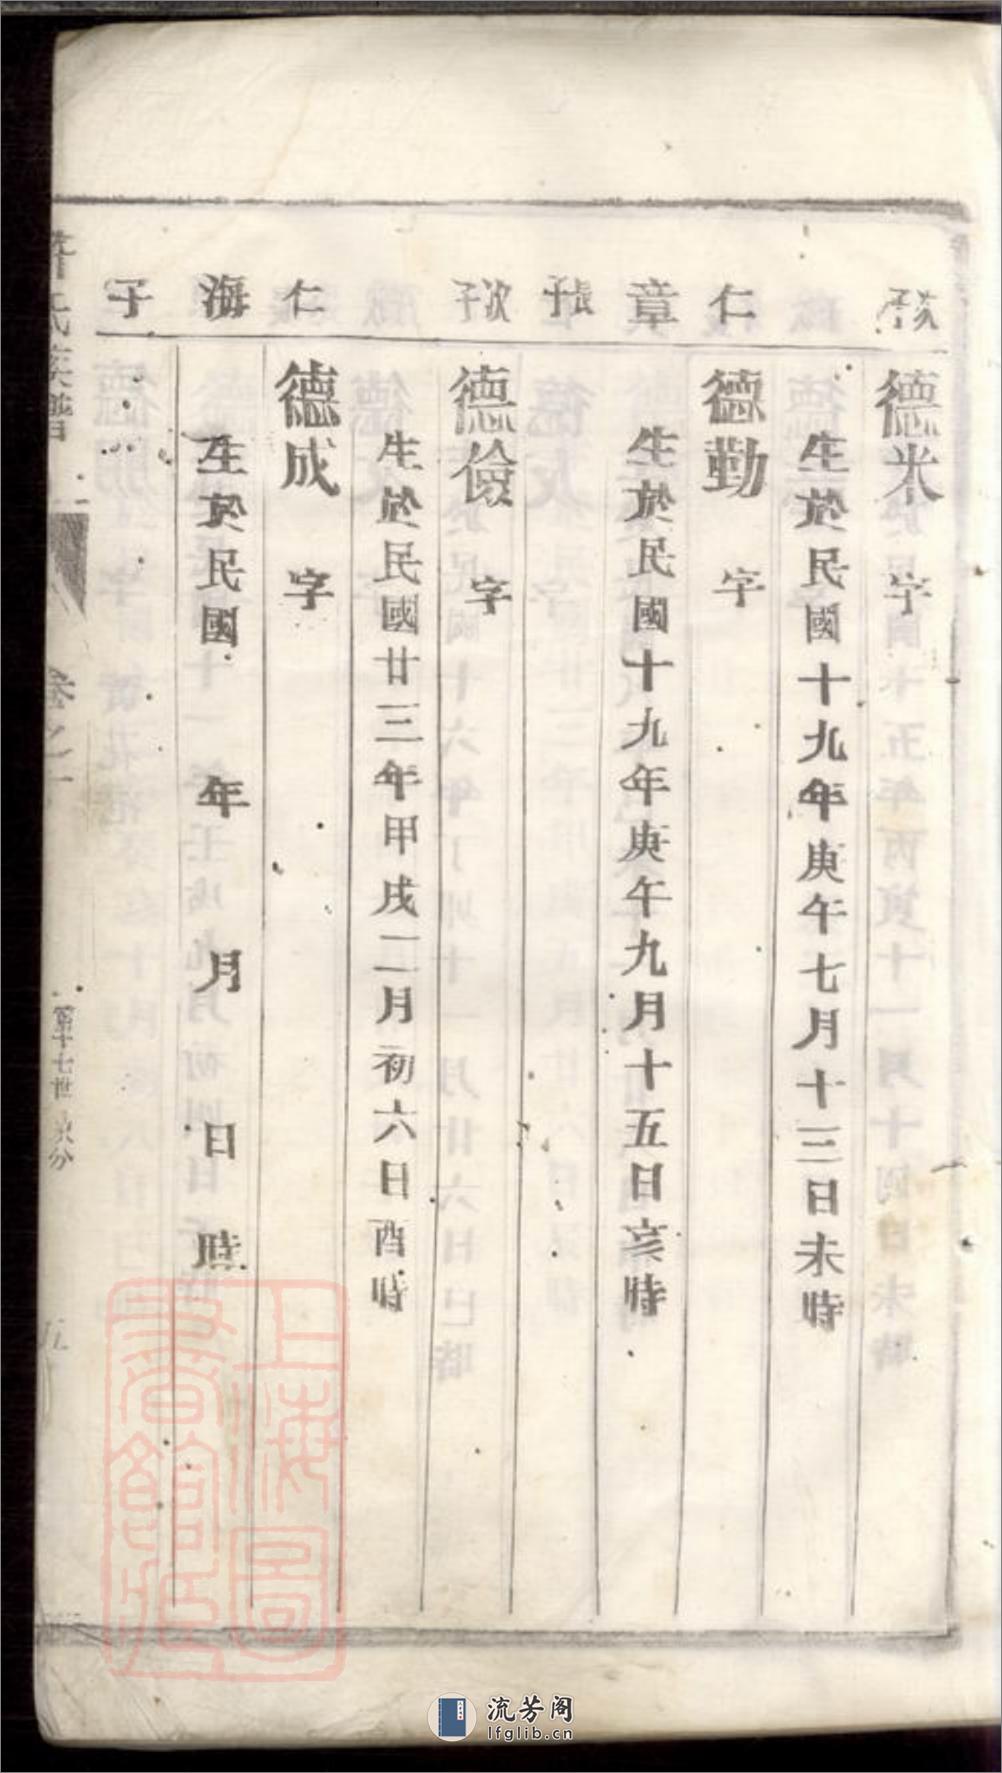 次子
德米 字
生於民國十九年庚午七月十三日未時
仁
德勤 字
章
生於民國十九年庚午九月十五日亥時
長子
次子
德儉 字
生於民國廿三年甲戌二月初六日酉時
仁
德成 字
海
生於民國 年 月 日 時
子
氏族譜
卷之一
第十七世
上海圖書館藏
流芳阁
lfglib.cn